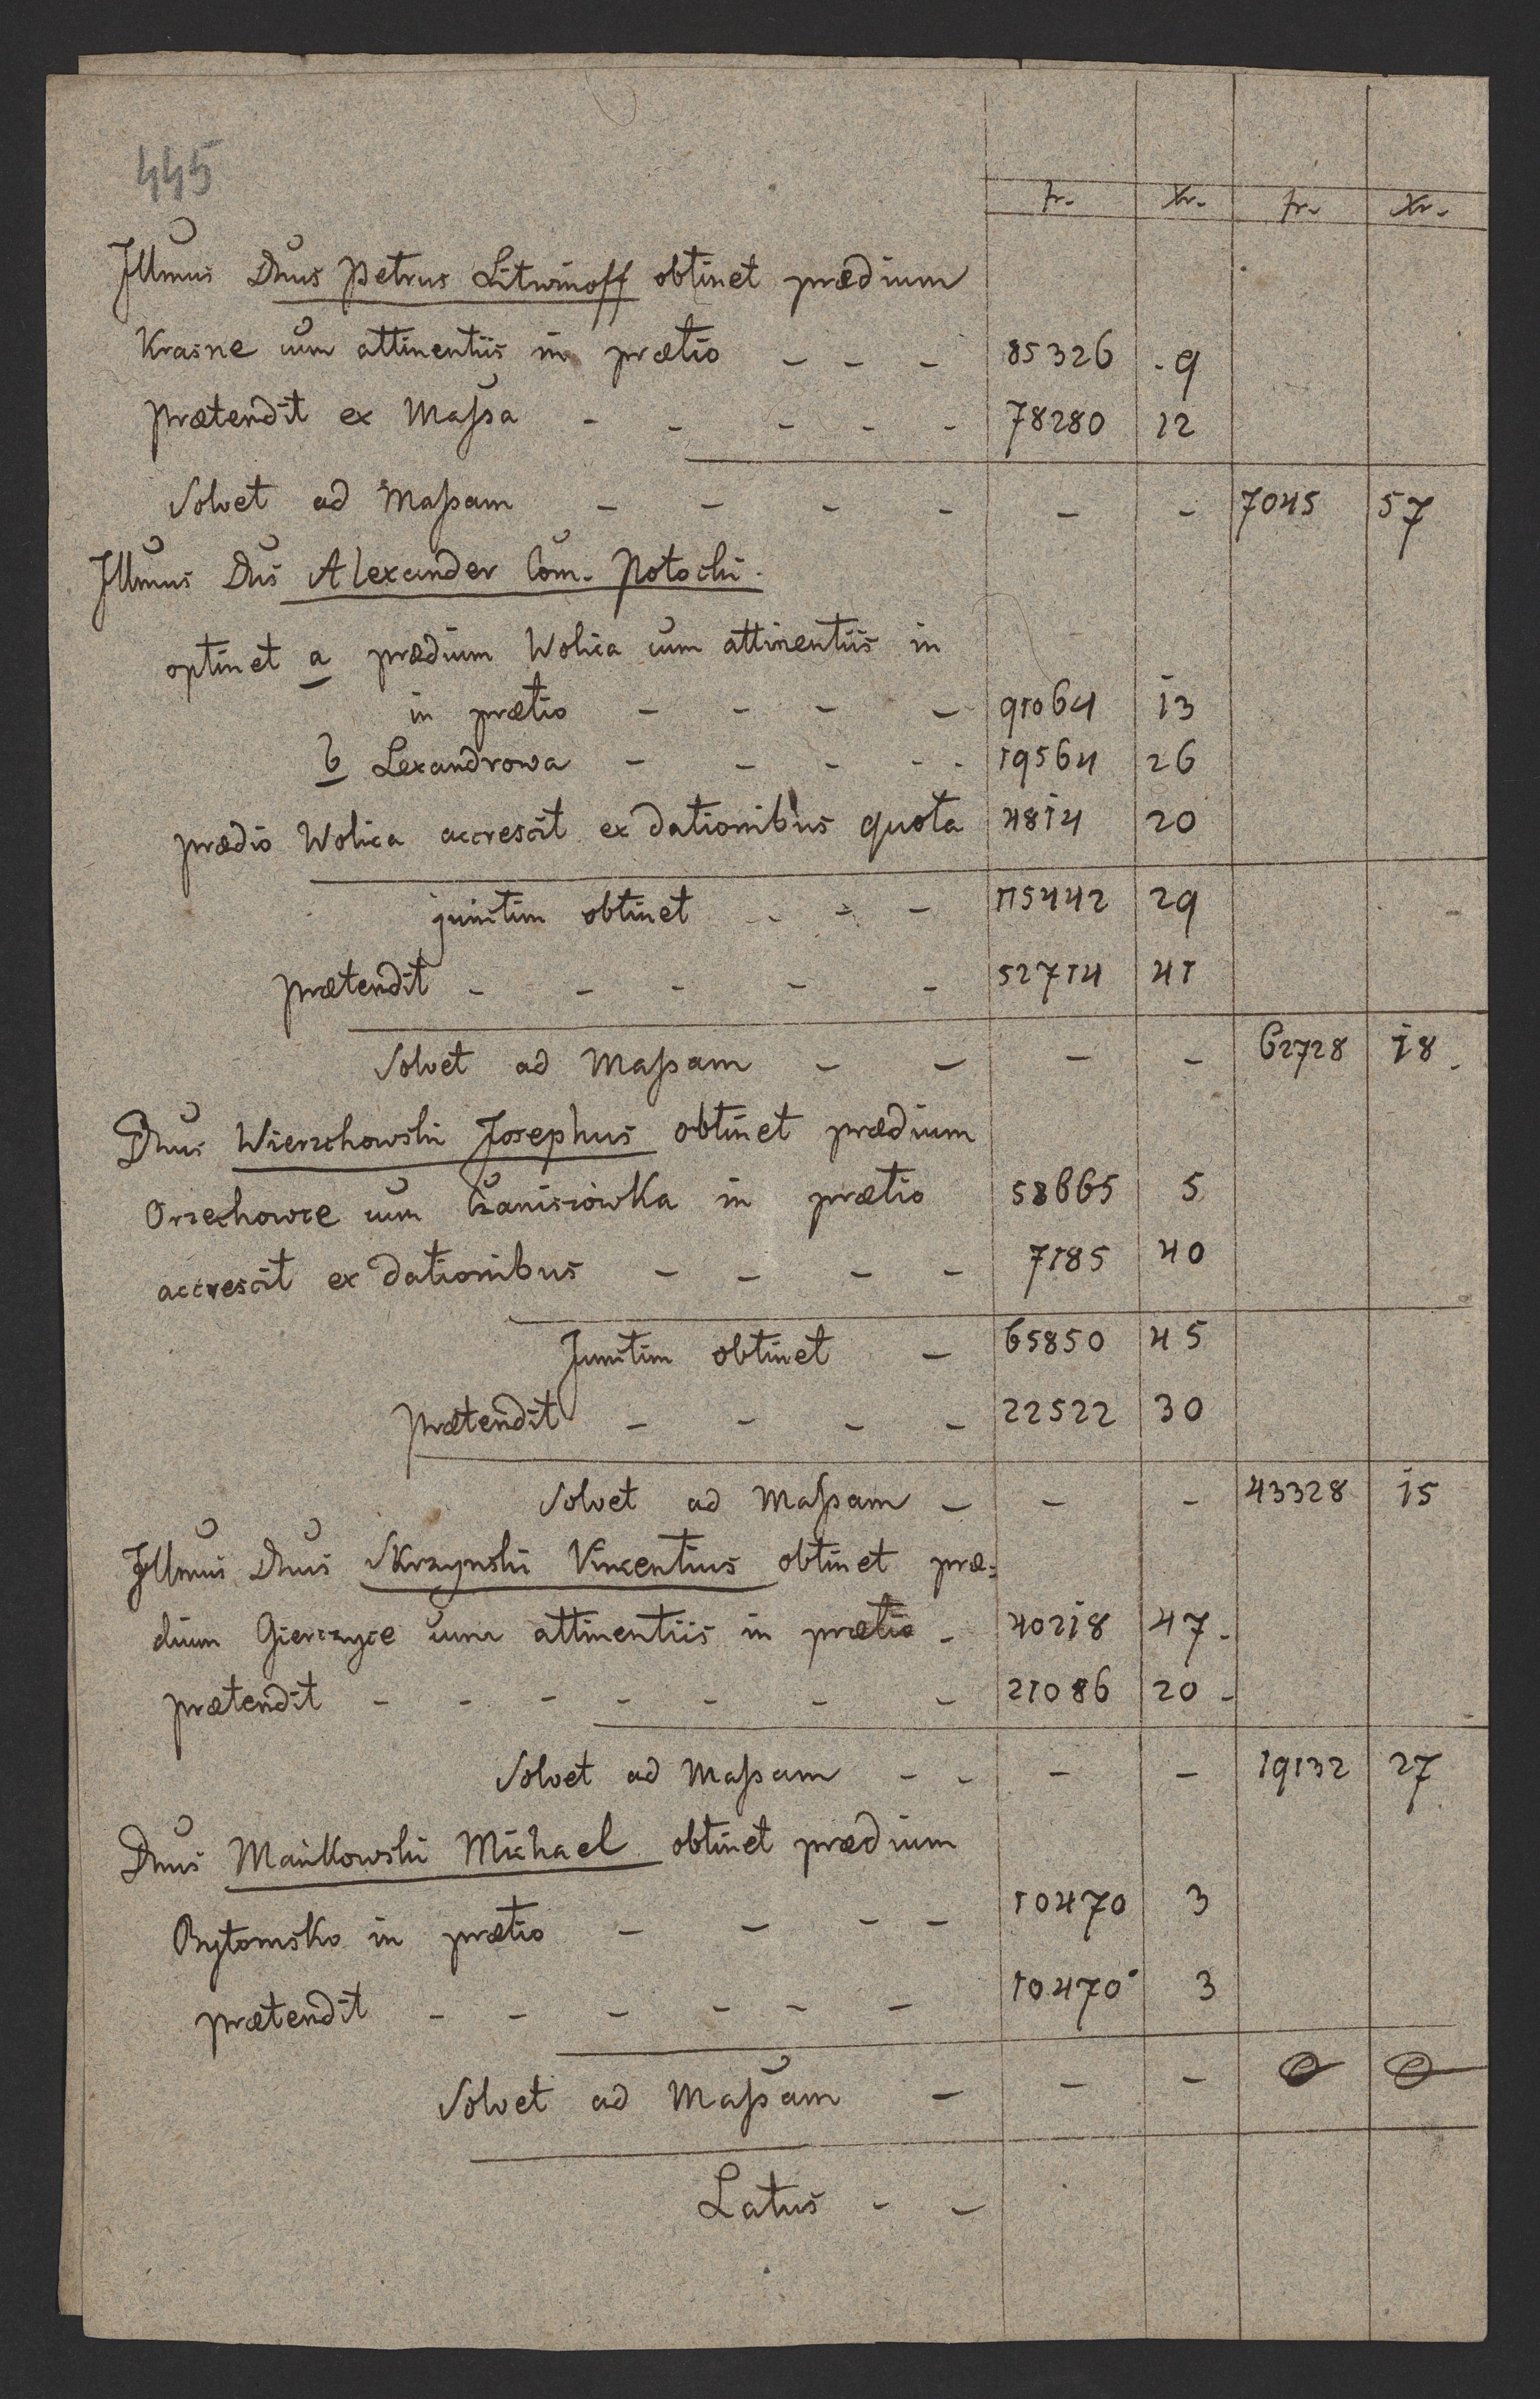 445
fr. Xr. fr. Xr.
Jllmus Dnus Petrus Litwinoff obtinet prædium
Krasne cum attinentiis in prætio - - - 85326 . 9
prætendit ex Massa - - - - - 78280 12
Solvet ad Massam - - - - - - 7045 57
Jllmus Dnus Alexander Com. Potocki.
optinet a prædium Wolica cum attinentiis in
in prætio - - - - 91064 13
b Lexandrowa - - - - - 19564 26
prædio Wolica accrescit ex dationibus quota 4814 20
junctim obtinet - - - 115442 29
prætendit - - - - - 52714 41
Solvet ad Massam - - - - 62728 18.
Dnus Wierzchowski Josephus obtinet prædium
Orzechowce cum in prætio 58665 5
accrescit ex dationibus - - - - 7185 40
Junctim obtinet - 65850 45
Prætendit - - - - 22522 30
Solvet ad Massam - - - 43328 15
Jllmus Dnus Skrzynski Vincentius obtinet præ:
dium Gierczyce cum attinentiis in prætio - 40218 47.
prætendit - - - - - - - 21086 20 -
Solvet ad Massam - - - - 19132 27
Dnus Mankowski Michael obtinet prædium
Bytomsko in prætio - - - - 10470 3
prætendit - - - - - - 10470 3
Solvet ad Massam - - - 0 0
Latus - -